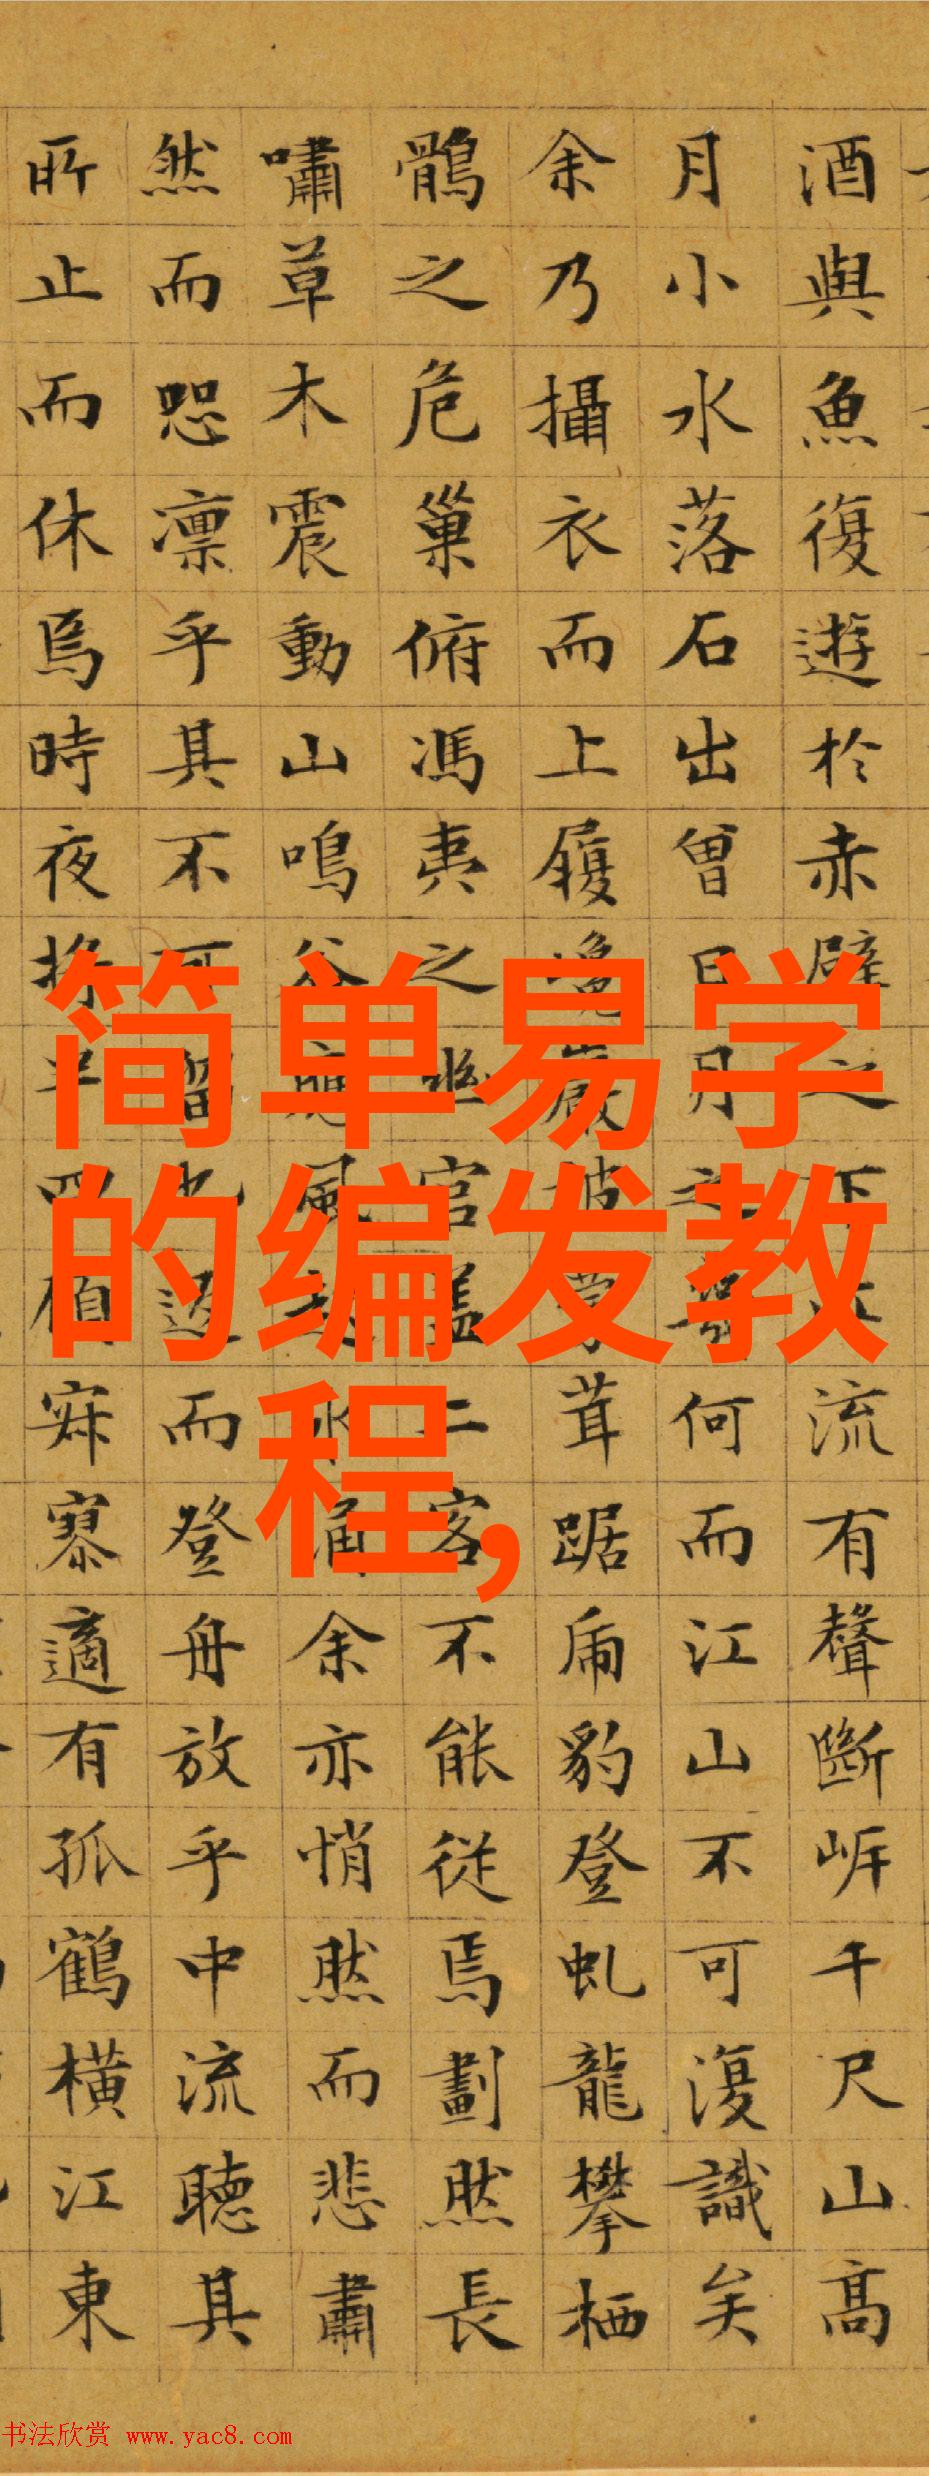 酒與魚復遊於赤壁之下江流有聲斷岸千尺山高
月小水落石出曾日月之幾何而江山不可復識矣
余乃攝衣而上履巉巖披蒙茸踞虎豹登虬龍攀栖
鶻之危巢俯馮夷之幽宮蓋二客不能從焉劃然長
嘯草木震動山鳴谷應風起水涌余亦悄然而悲肅
然而恐凛乎其不可留也返而登舟放乎中流聽其
所止而休焉時夜將半四顧寂寥適有孤鶴橫江東
简单易学
的编发教
程,
书法欣赏 www.yac8.com